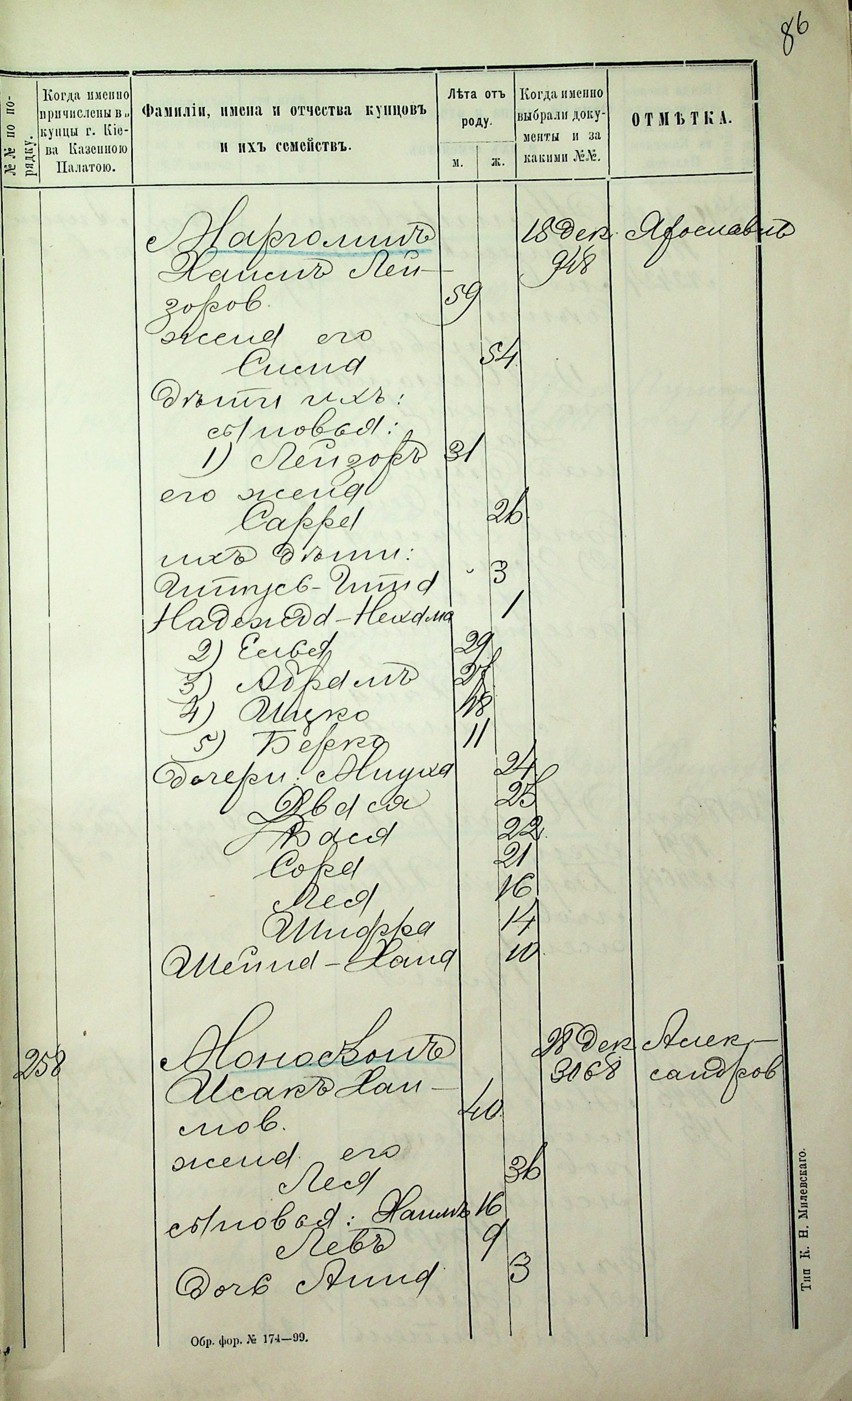 86
№№ по по-
рядку.
Когда именно
причислены въ
купцы г. Кіе-
ва Казенною
Палатою.
Фамиліи, имена и отчества купцовъ
и ихъ семействъ.
Лѣта отъ
роду.
м. ж.
Когда именно
выбрали доку-
менты и за
какими №№.
ОТМѢТКА.
Марголинъ 18 дек
Хаимъ Лей-
зоров. 59
жена его
Сима 54
Дѣти ихъ:
сыновья:
1) Лейзоръ 31
его жена
Сарра 26
ихъ дѣти:
Итта 3
Надежда-Нехама 1
2) Ельья 29
3) Абрамъ 27
4) Ицко 18
5) Берко 11
Дочери: 24
Двася 23
Бася 22
Сора 21
Лея 16
Шифра 14
Шейна-Хана 10
258 28 дек Алек-
3068 сандров
Исакъ Хаи-
мов. 40
жена его
Лея 36
сыновья: Хаимъ 16
Левъ 9
Дочь Анна 3
Обр. фор. № 174—99.
Тип К. Н. Милевскаго.